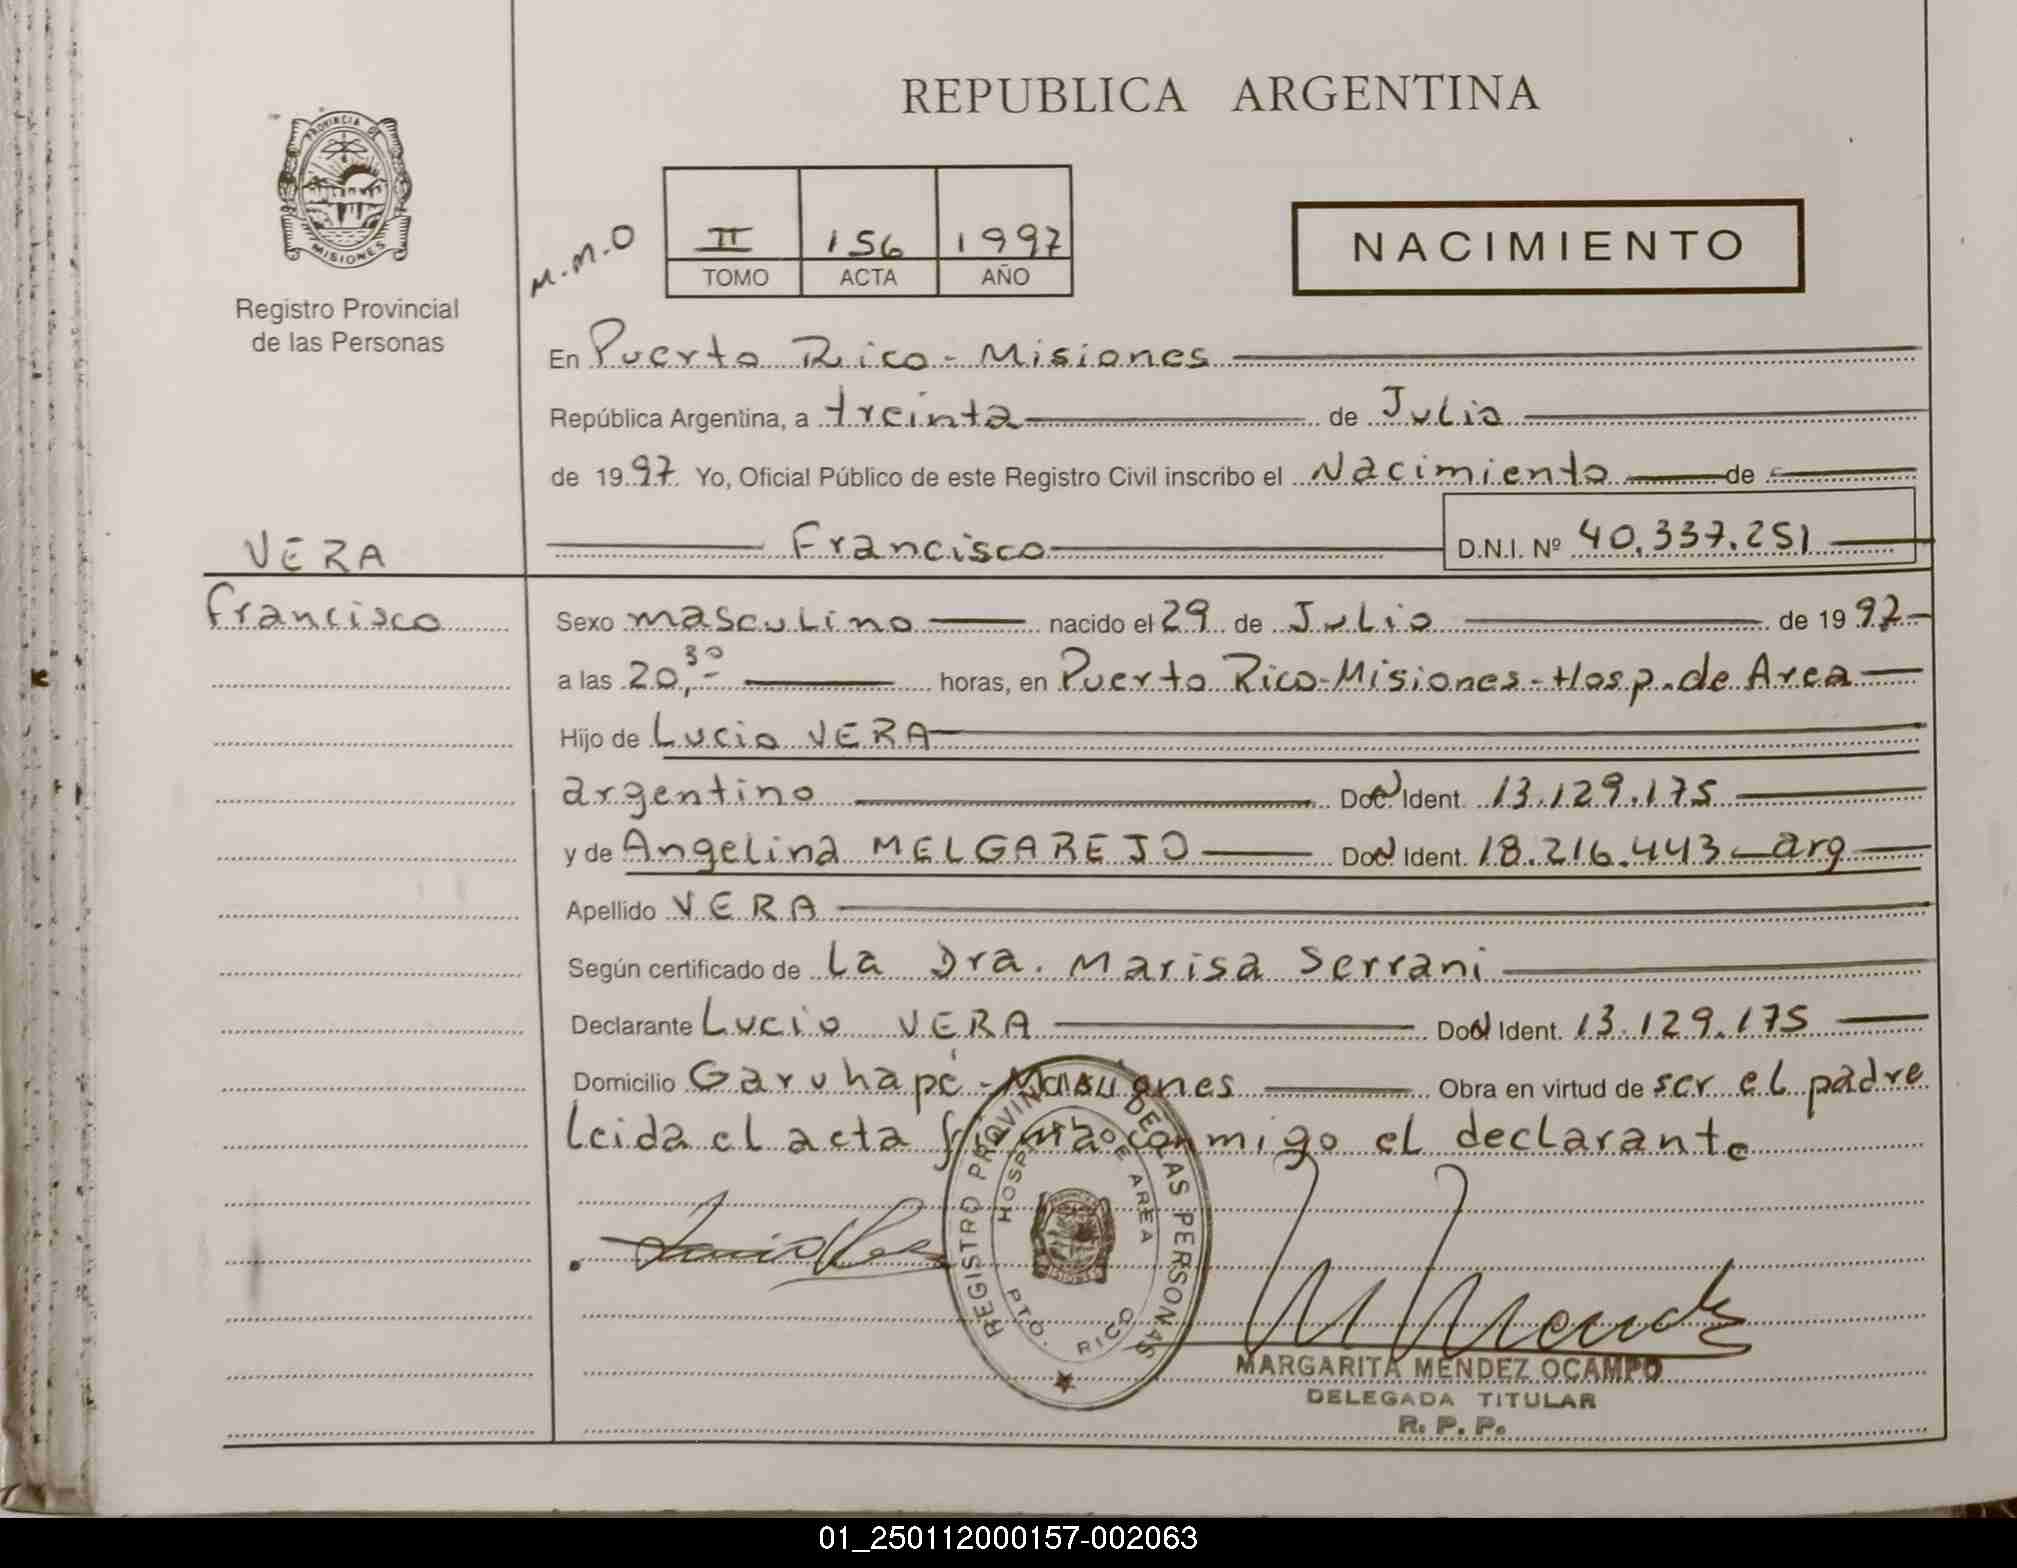 REPUBLICA ARGENTINA
PROVINCIA DE MISIONES
Registro Provincial
de las Personas
M.M.O
II 156 1997
TOMO ACTA AÑO
NACIMIENTO
En Puerto Rico - Misiones
República Argentina, a treinta de Julio
de 1997 Yo, Oficial Público de este Registro Civil inscribo el Nacimiento de
VERA
Francisco D.N.I. Nº 40.337.251
Francisco
Sexo masculino nacido el 29 de Julio de 1997
a las 20,30 horas, en Puerto Rico-Misiones-Hosp. de Area
Hijo de Lucio VERA
argentino Doc Ident. 13.129.175
y de Angelina MELGAREJO Doc Ident. 18.216.443 - arg
Apellido VERA
Según certificado de La Dra. Marisa Serrani
Declarante Lucio VERA Doc Ident. 13.129.175
Domicilio Garuhapé - Misiones Obra en virtud de ser el padre
leida el acta firma conmigo el declarante
REGISTRO PROVINCIAL DE LAS PERSONAS
HOSPITAL DE AREA
MISIONES
PTO. RICO
MARGARITA MENDEZ OCAMPO
DELEGADA TITULAR
R. P. P.
01_250112000157-002063